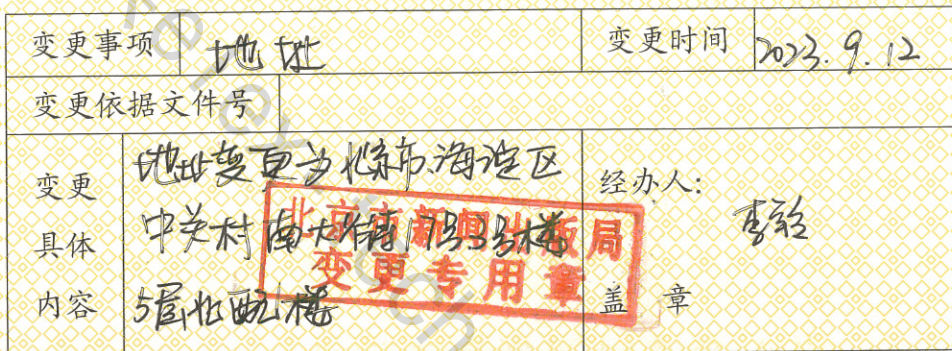 变更事项 地址 变更时间 2023.9.12
变更依据文件号
变更具体内容
地址变更为北京市海淀区
中关村南大街特17号3号楼
5层北配楼
经办人:
盖章
北京市新闻出版局
变更专用章